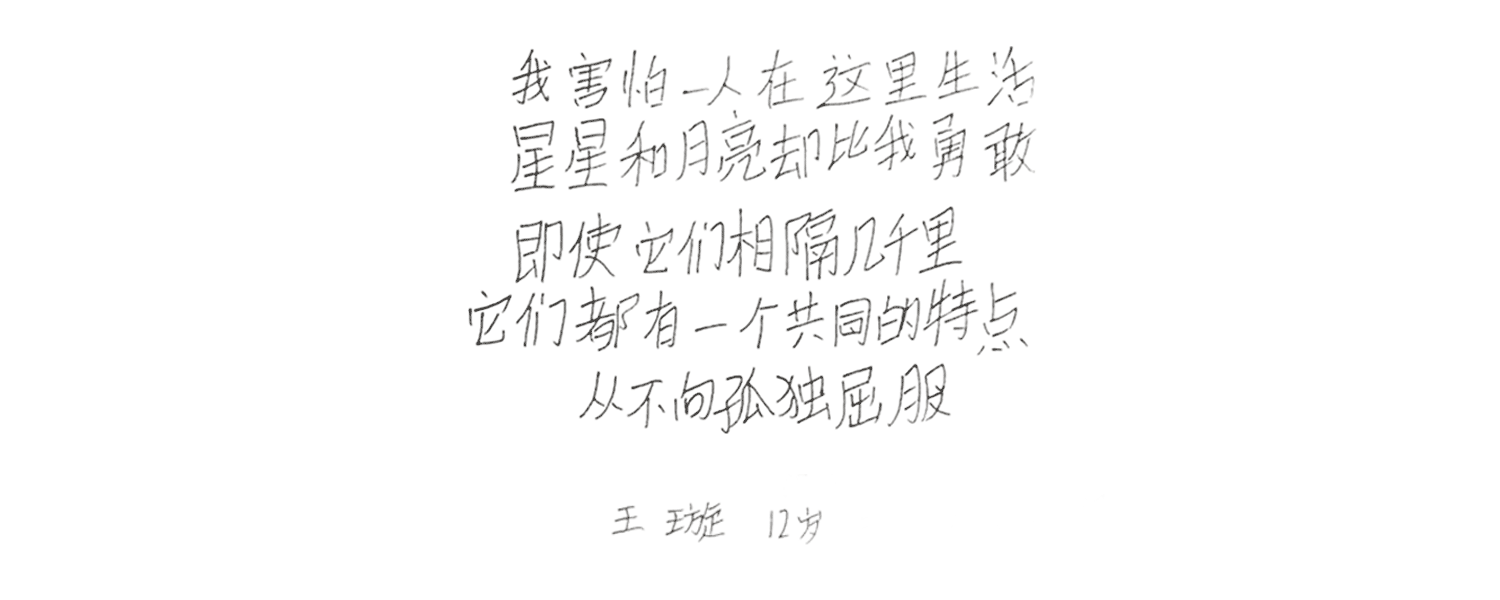 我害怕一人在这里生活
星星和月亮却比我勇敢
即使它们相隔几千里
它们都有一个共同的特点
从不向孤独屈服
王璇 12岁